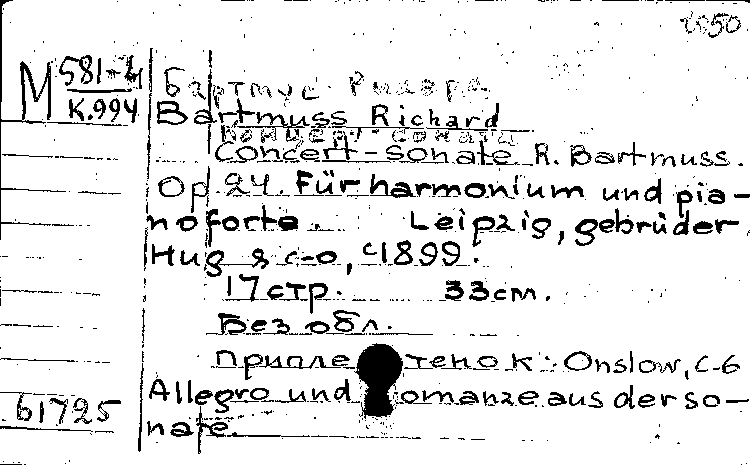 1050
М 581-4
К.994
Бартмус Рихард
Bartmuss Richard
Концерт-соната
Concert-sonate R. Bartmuss.
Op. 24. Für harmonium und pia-
noforte. Leipzig, gebrüder
Hug & c-o, c1899.
17 стр. 33 см.
Без обл.
Припле тено к: Onslow, С-6
Allegro und omanze aus der so-
nate.
61725